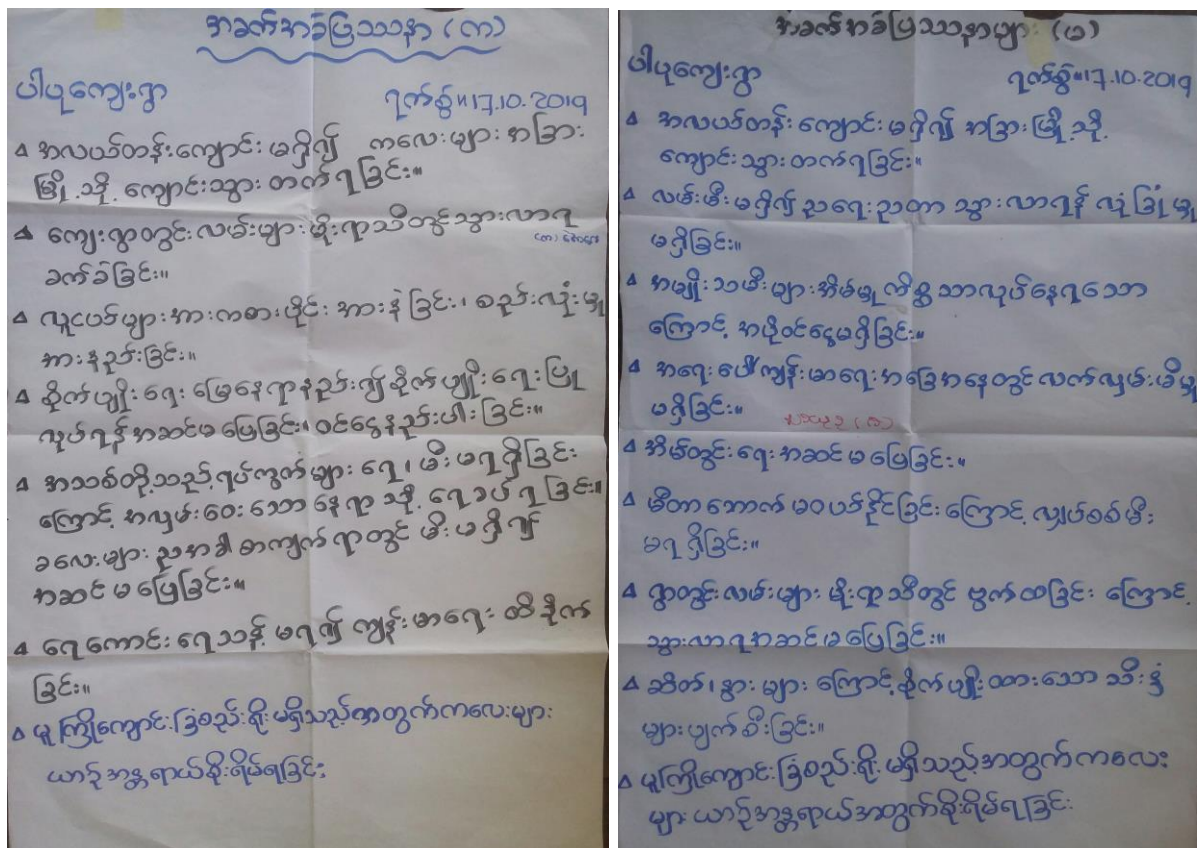 အခက်အခဲပြဿနာ (က)
ပါပုကျေးရွာ
ရက်စွဲ။17.10.2019
Δ အလယ်တန်းကျောင်းမရှိ၍ ကလေးများ အခြား
မြို့သို့ ကျောင်းသွားတက်ရခြင်း။
Δ ကျေးရွာတွင်းလမ်းများမိုးရာသီတွင်သွားလာရ
ခက်ခဲခြင်း။
Δ လူငယ်များအားကစားပိုင်းအားနဲခြင်း၊ စည်းလုံးမှု
အားနည်းခြင်း။
Δ စိုက်ပျိုးရေးမြေနေရာနည်း၍စိုက်ပျိုးရေးပြု
လုပ်ရန်အဆင်မပြေခြင်း၊ ဝင်ငွေနည်းပါးခြင်း။
Δ အသစ်တို့သည့်ရပ်ကွက်များ ရေ၊ မီးမရရှိခြင်း
ကြောင့် အလှမ်းဝေးသောနေရာသို့ ရေခပ်ရခြင်း။
ခလေးများညအခါစာကျက်ရာတွင် မီးမရှိ၍
အဆင်မပြေခြင်း။
Δ ရေကောင်းရေသန့်မရ၍ ကျန်းမာရေးထိခိုက်
ခြင်း။
Δ မူကြိုကျောင်းခြံစည်းရိုးမရှိသည့်အတွက်ကလေးများ
ယာဉ်အန္တရာယ်စိုးရိမ်ရခြင်း
အခက်အခဲပြဿနာများ (မ)
ပါပုကျေးရွာ
ရက်စွဲ။17.10.2019
Δ အလယ်တန်းကျောင်းမရှိ၍ အခြားမြို့သို့
ကျောင်းသွားတက်ရခြင်း။
Δ လမ်းမီးမရှိ၍ညရေးညတာသွားလာရန် လုံခြုံမှု
မရှိခြင်း။
Δ အမျိုးသမီးများအိမ်မှုကိစ္စသာလုပ်နေရသော
ကြောင့် အပိုဝင်ငွေမရှိခြင်း။
Δ အရေးပေါ်ကျန်းမာရေးအခြေအနေတွင်လက်လှမ်းမီမှု
မရှိခြင်း။
Δ အိမ်တွင်းရေးအဆင်မပြေခြင်း။
Δ မီတာဘောက်မဝယ်နိုင်ခြင်းကြောင့် လျှပ်စစ်မီး
မရရှိခြင်း။
Δ ရွာတွင်းလမ်းများ မိုးရာသီတွင် ဗွက်ထခြင်းကြောင့်
သွားလာရအဆင်မပြေခြင်း။
Δ ဆိတ်၊ နွားများကြောင့်စိုက်ပျိုးထားသောသီးနှံ
များပျက်စီးခြင်း။
Δ မူကြိုကျောင်းခြံစည်းရိုးမရှိသည့်အတွက်ကလေး
များယာဉ်အန္တရာယ်အတွက်စိုးရိမ်ရခြင်း